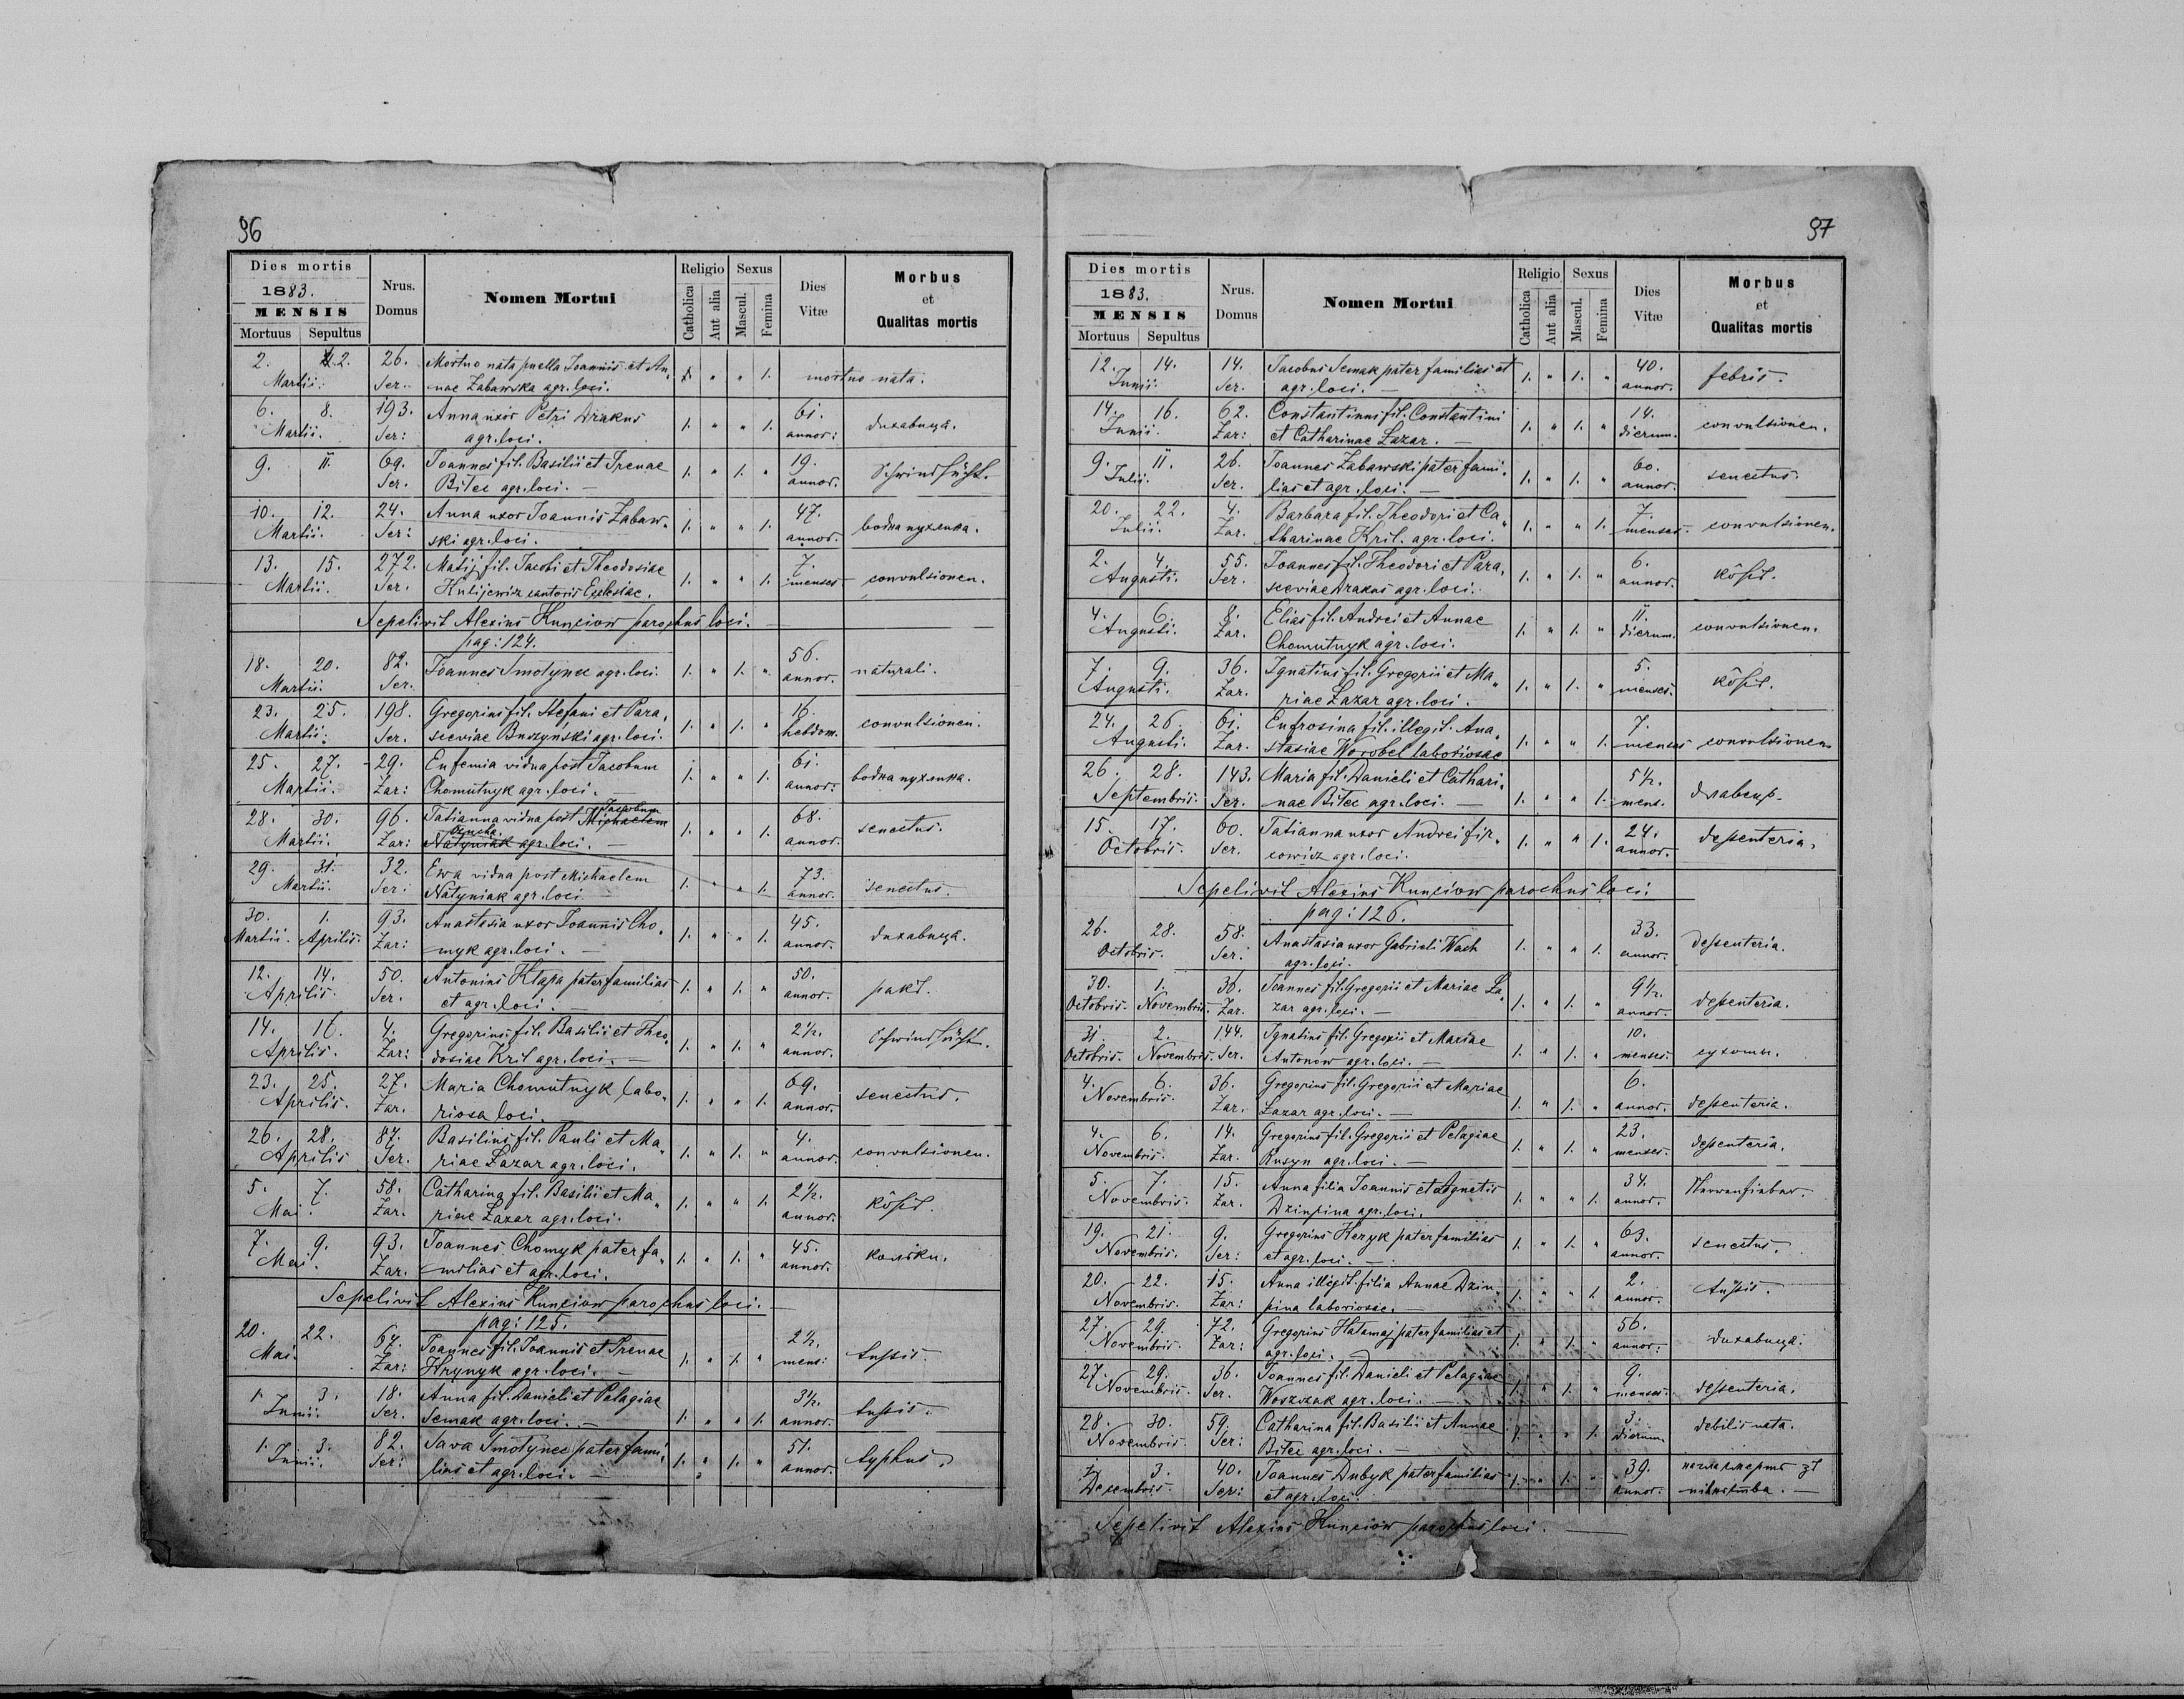 96
Dies mortis
1883.
MENSIS
Mortuus Sepultus
Nrus. Domus
Nomen Mortui
Religio
Catholica Aut alia
Sexus
Mascul. Femina
Dies Vitæ
Morbus
et
Qualitas mortis
2. 2. 26. Mortuo nata puella Joannis et An„ 1. " " 1. mortuo nata.
Martii. Ser. nae Zabawska agr. loci.
6. 8. 193. Anna uxor Petri Drakus 1. " " 1. 61. духавица.
Martii. Ser: agr. loci. annor:
9. 11. 69. Joannes fil. Basilii et Irenae 1. " 1. " 19. Schwindsucht.
Ser. Bilec agr. loci. — annor.
10. 12. 24. Anna uxor Joannis Zabaw„ 1. " " 1. 47. водна пухлина.
Martii. Ser: ski agr. loci. annor.
13. 15. 272. Matij fil. Jacobi et Theodosiae 1. " " 1. 7. convulsionen.
Martii. Ser. Hulijewicz cantoris Eclesiae. menses
Sepelivit Alexius Kunciow parochus loci. —
pag: 124.
18. 20. 82. Joannes Smotynec agr. loci. 1. " 1. " 56. naturali.
Martii. Ser. annor.
23. 25. 198. Gregorius fil. Stefani et Para„ 1. " 1. " 16. convulsionen.
Martii. Ser. sceviae Buszynski agr. loci. hebdom.
25. 27. 29. Eufemia vidua post Jacobum 1. " " 1. 61. водна пухлина.
Martii. Zar: Chomutnyk agr. loci. — annor:
28. 30. 96. Tatianna vidua post Michaelem Jacobum 1. " " 1. 68. senectus.
Martii. Zar: Natyniak agr. loci. — annor.
29. 31. 32. Ewa vidua post Michaelem 1. " " 1. 73. senectus.
Martii. Ser: Natyniak agr. loci. annor.
30. 1. 93. Anastasia uxor Joannis Cho„ 1. " " 1. 45. духавица.
Martii. Aprilis. Zar: myk agr. loci. — annor.
12. 14. 50. Antonius Hlapa pater familias 1. " 1. " 50. ракъ.
Aprilis. Ser. et agr. loci. — annor.
14. 16. 4. Gregorius fil. Basilii et Theo„ 1. " 1. " 2½. Schwindsucht.
Aprilis. Zar: dosiae Kril agr. loci. — annor.
23. 25. 27. Maria Chomutnyk labo„ 1. " " 1. 69. senectus.
Aprilis. Zar. riosa loci. annor.
26. 28. 87. Basilius fil. Pauli et Ma„ 1. " 1. " 4. convulsionen.
Aprilis Ser. riae Lazar agr. loci. annor.
5. 7. 58. Catharina fil. Basilii et Ma„ 1. " " 1. 2½. кôръ.
Mai. Zar. riae Lazar agr. loci. annor.
7. 9. 93. Joannes Chomyk pater fa„ 1. " 1. " 45. кольки.
Mai. Zar. milias et agr. loci. annor.
Sepelivit Alexius Kunciow parochus loci. —
pag: 125.
20. 22. 64. Joannes fil. Joannis et Irenae 1. " 1. " 2½. tussis.
Mai. Zar: Hrynyk agr. loci. — mens:
1. 3. 18. Anna fil. Danieli et Pelagiae 1. " " 1. 3½. tussis.
Junii. Ser. Semak agr. loci. — annor.
1. 3. 82. Sava Smotynec pater fami„ 1. " 1. " 51. typhus.
Junii. Ser: lias et agr. loci. — annor.
97
Dies mortis
1883.
MENSIS
Mortuus Sepultus
Nrus. Domus
Nomen Mortui
Religio
Catholica Aut alia
Sexus
Mascul. Femina
Dies Vitæ
Morbus
et
Qualitas mortis
12. 14. 14. Jacobus Semak pater familias et 1. " 1. " 40. febris.
Junii. Ser. agr. loci. — annor.
14. 16. 62. Constantinus fil. Constantini 1. " 1. " 14. convulsionen.
Junii. Zar: et Catharinae Lazar. — dierum.
9. 11. 26. Joannes Zabawski pater fami„ 1. " 1. " 60. senectus.
Julii. Ser. lias et agr. loci. — annor.
20. 22. 4. Barbara fil. Theodori et Ca„ 1. " " 1. 7. convulsionen.
Julii. Zar. tharinae Kril. agr. loci. menses.
2. 4. 55. Joannes fil. Theodori et Para„ 1. " 1. " 6. кôръ.
Augusti. Ser. sceviae Drakus agr. loci. annor.
4. 6. 8. Elias fil. Andrei et Annae 1. " 1. " 11. convulsionen.
Augusti. Zar. Chomutnyk agr. loci. dierum.
7. 9. 36. Ignatius fil. Gregorii et Ma„ 1. " 1. " 5. кôръ.
Augusti. Zar. riae Lazar agr. loci. menses.
24. 26. 61. Eufrosina fil. illegit. Ana„ 1. " " 1. 7. convulsionen
Augusti. Zar. stasiae Worobel laboriosae menses
26. 28. 143. Maria fil. Danieli et Cathari„ 1. " " 1. 5½. длавець.
Septembris. Ser. nae Bilec agr. loci. — mens.
15. 17. 60. Tatianna uxor Andrei fir„ 1. " " 1. 24. dessenteria.
Octobris. Ser. cowicz agr. loci. annor.
Sepelivit Alexius Kunciow parochus loci.
pag: 126.
26. 28. 58. Anastasia uxor Gabrieli Wach 1. " " 1. 33. dessenteria.
Octobris. Ser. agr. loci. annor.
30. 1. 36. Joannes fil. Gregorii et Mariae La„ 1. " 1. " 9½. dessenteria.
Octobris. Novembris. Zar. zar agr. loci. — annor.
31. 2. 144. Ignatius fil. Gregorii et Mariae 1. " 1. " 10. сухоты.
Octobris. Novembris. Ser. Antonów agr. loci. — menses.
4. 6. 36. Gregorius fil. Gregorii et Mariae 1. " 1. " 6. dessenteria.
Novembris. Zar. Lazar agr. loci. — annor.
4. 6. 14. Gregorius fil. Gregorii et Pelagiae 1. " 1. " 23. dessenteria.
Novembris. Zar. Rusyn agr. loci. — menses.
5. 7. 15. Anna filia Joannis et Agnetis 1. " " 1. 34.
Novembris. Zar. Dzinpina agr. loci. annor.
19. 21. 9. Gregorius Heryk pater familias 1. " 1. " 63. senectus.
Novembris. Ser: et agr. loci. — annor.
20. 22. 15. Anna illegit. filia Annae Dzin„ 1. " " 1. 2. tussis.
Novembris. Zar: pina laboriosae. — annor.
27. 29. 72. Gregorius Hatamaj pater familias et 1. " 1. " 56. духавица.
Novembris. Zar: agr. loci. annor:
27. 29. 36. Joannes fil. Danieli et Pelagiae 1. " 1. " 9. dessenteria.
Novembris. Ser. Woszczak agr. loci. — menses.
28. 30. 59. Catharina fil. Basilii et Annae 1. " " 1. 3. debilis nata.
Novembris. Ser: Bilec agr. loci. — dierum.
1. 3. 40. Joannes Dubyk pater familias 1. " 1. " 39. нагла смерть зъ
Decembris. Ser: et agr. loci. annor. піяньства. —
Sepelivit Alexius Kunciow parochus loci. —